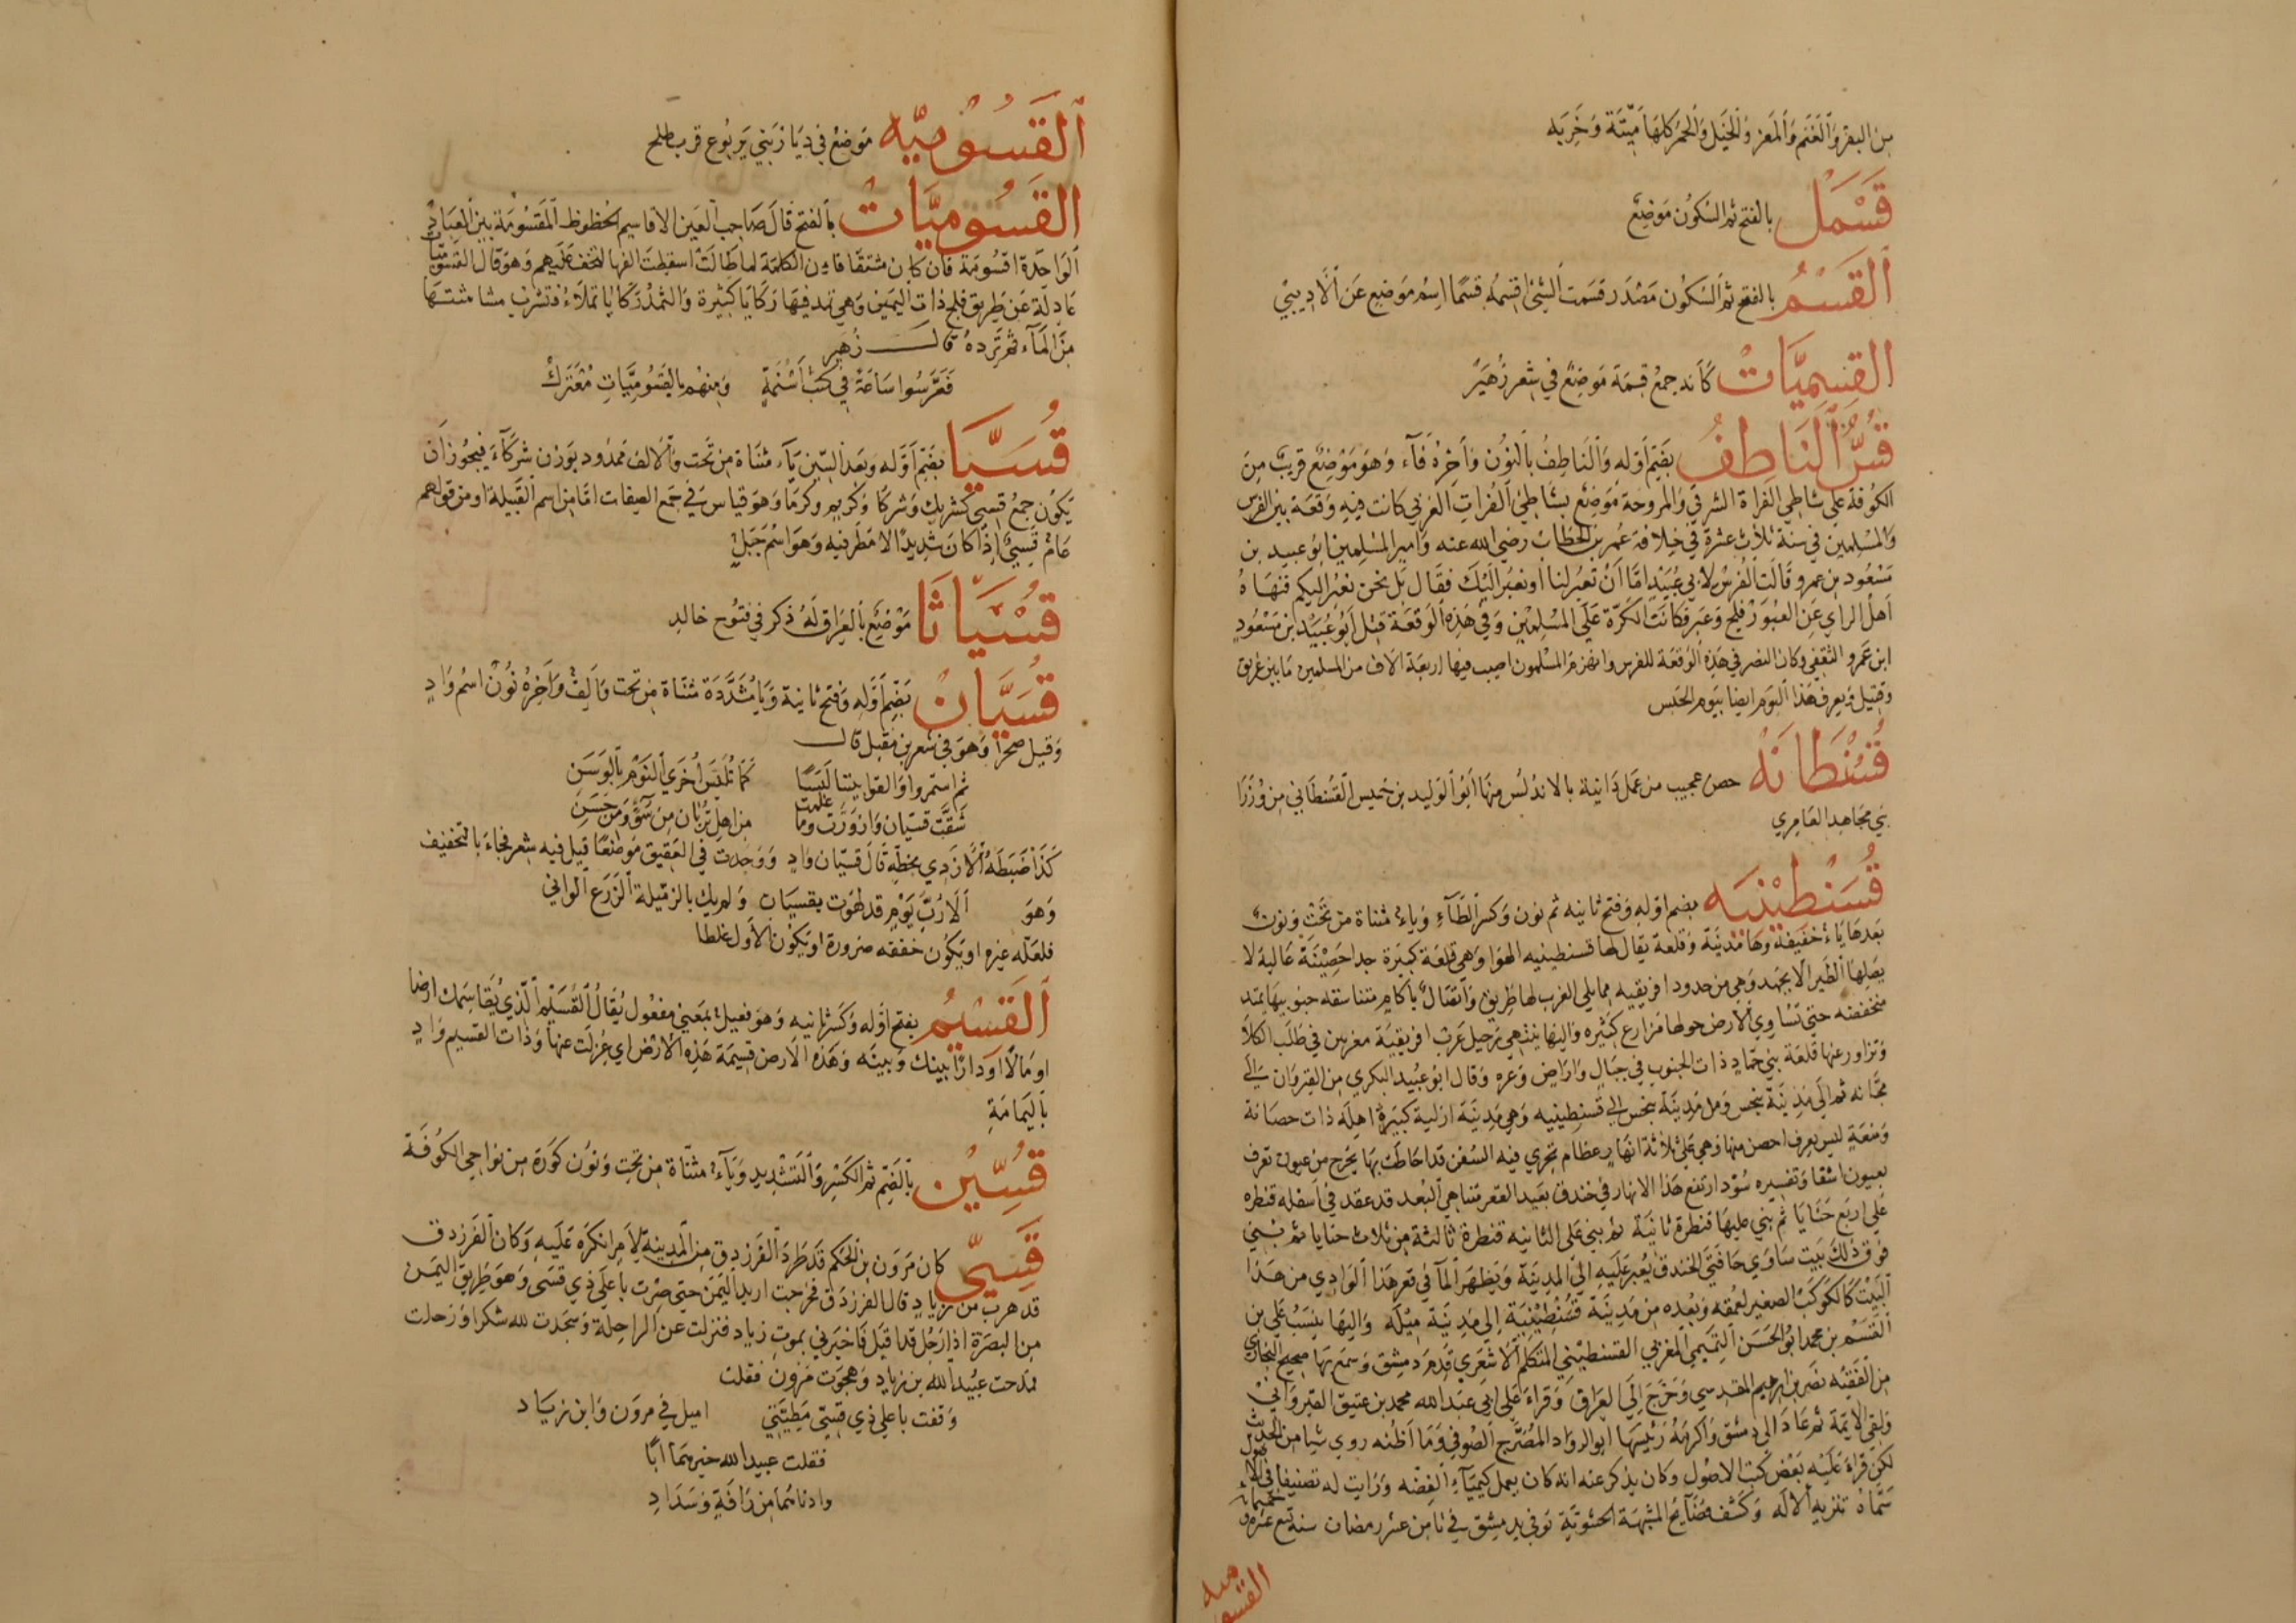 من البقر وَٱلغَنَم وَٱلمَعز وَالخَيل وَٱلحُمر كلهَا مَيّتَة وَخَربَه
قَسْمَل بالفتح ثم السّكوُن مَوَضِعٌ
ٱلقَسْمُ بالفتح ثم ٱلسّكوُن مَصْدَر قسَمت ٱلشئ اقسِمُه قسْمًا اِسمُ مَوضعٍ عَن ٱلاَديبيّ
القسِميَّاتْ كَأنه جمعْ قِسمَة مَوضِعٌ في شِعر زُهَيرٌ
قُسُّ ٱلنَاطِفُ بضَمِّ أوَله وَٱلنَاطِفُ بٱلنوُن وَآخِرهُ فآء وَهوَ مَوْضِعٌ قريبٌ مِنَ
الكوُفة علي شاطِئ الفراة الشرقي وَالمروحَة مَوَضِعٌ بشَاطِئ ٱلفُراتِ ٱلغرَبي كانت فيه وَقعَة بيْن الفرس
وَالمسْلِمين في سنة ثلاَث عشرة في خِلافة عُمر بن الخطابْ رضي الله عنه وَامِير المسْلِمين ابوُ عبيد بن
مَسْعُود بن عمرو قالَت الفُرسُ لاَبي عُبَيْد امَّا أنْ تعبُر لنا أو نعبُر اليْكَ فقَال بَل نحن نعبُر اليكم فنهَاهُ
اَهلُ الرايِ عَن العُبوُر فلج وَعَبر فكانَت الكَرَّة عَلَي المُسْلِمْين وَفي هَذِه ٱلوَقعَة قتل أبُو عُبَيْد ابن مَسْعُودٍ
ابن عَمرو الثقفي وكان النصر في هَذِه ٱلوَقعَة للفرس وانهزم المسْلمون اصيب فيها اربعَة الاف من المسلمين مَا بين غريق
وَقتيل وَيعرف هَذا ٱليَوم ايضا بيَوم الجسر
قُسْنْطَانَهْ حصن عجيب من عَمل دَانية بالاندلُس منهَا أبوُ ٱلوَليد بن خميس القسْطَاني مِن وُزَرَا
بَني مجَاهد العَامِري
قُسَنْطِيْنيَه بضم اوَله وَفتح ثانيه ثم نون وَكسر ٱلطَآءِ وَياءٌ مثناة مِن تَحْتْ وَنونٌ
بَعدهَا يَاءٌ خفيفة وَهَا مَدينَة وَقلعَة يقال لها قسنطينيه الهوَا وَهي قلعَة كبيَرة جدا حَصِيْنَة عَالية لا
يصَلهَا ٱلطَير الا بجهَد وَهي من حدود افريقيه ممايلي الغرب لها طَريقٌ وَٱتصَالٌ بآكام متناسقه جنوبيهَا يمتد
منخفضه حتي تسَاوي ٱلارَض حولها مَزارع كثيْره وَاليهَا ينتهي رَحيل عَرَب افريقيَة مغربين في طلَب الكلا
وَتزاور عنها قلعَة بني حماد ذات الجنوب في جبَال وَارَاض وَعره وَقال ابوُ عبُيد البكري مِن القيروَان الي
مجّانه ثم الَي مَدينَة ينجس وَمن مَدينَة ينجس الي قسَنطينيه وَهي مَدينَة ازلية كبيَرةٌ اهِلَه ذات حصَانة
وَمنعَةٍ ليسَ يعرف احصن منها وَهي عَلي ثلاثة انهَارٍ عظام تجري فيه السفن قد احَاطت بهَا يخرج من عيوُن تعرف
بعيون اشقا وَتفسِيره سُوْد ارتفع هَذا الانهار في خندق بعَيد القعر متناهي ٱلبُعد قد عقد في أسفله قنطره
عَلي اربَع حَنَايَا ثم بَنيَ عليهَا قنطرة ثانيَة ثم بني عَلي الثانيه قنطرة ثالثة من ثلاث حنايا ثم بنْيَ
فوق ذلك بَيت سَاوي حَافتي الخندق يُعبرَ عَلَيهِ الي المديَنة وَيظهَر ٱلمآ في قعر هَذا ٱلوَادي من هَذا
ٱلبَيْت كَالكوكَب الصغير لعمقه وَبعْده من مَدينَة قسُنْطِيْنيَة إلى مَدينَة مِيْلَه وَاليْهَا ينسَبُ عَلي بن
القَسْم بن محمد ابوُ الحَسَن ٱلتميمي ٱلمغزبي القسنطينيّ المتكلم ٱلاَشعَري قدم دمشق وَسمع بهَا صحيح البخاري
من الفقيْه نصَر بن ابرهيم المقدسي وَخرَج الَي العراق وَقراءَ عَلي ابي عبَد الله محمد بن عتيق القيروَانيّ
وَلقي الايمة ثم عَادَ الي دمشق وَاكرمَهُ رَئيسهَا ابو الدواد المفَرَّج ٱلصُوفي وَمَا اظنه روي شيا من الحديث
لكن قرأ عَليْه بَعْض كتب الاصوُل وَكان يذكر عنه انه كان يعمل كيميآء ٱلفضّه وَرَايت له تصنيفا في الاصول
سَمَّاه تنزيه ٱلالَه وَكشف فضَآيح المشبَهة الحشوَيّةِ توُفي بدمشق في ثامن عشر رمضان سنة تسع عشره وخمسمايه
القسُوميه
ٱلقَسُوْمِيّه مَوَضعٌ في ديَار بَني يَربوُع قرب طلح
القَسُوميَّاتْ بٱلفتح قالَ صَاحِب ٱلعَين الاقاسِيم الحظوُظ ٱلمَقسُومَة بين ٱلعبَادِ
ٱلوَاحَدَة اقسُومَة فان كان مشتقا فان الكلمَة لما طَالَت اسقطَت الفها لتخف عَليهم وَهو قال القسوميَّات
عَادلَة عَن طَريق فلج ذات اليَمين وَهي ثمد فيهَا رَكايَا كثيَرة وَالثمدْ رَكايَا تملاءُ فتشرب مشاشتهَا
مِنَ المَآء ثم تَرده قال زُهيَر
فَعَرَّسُوا سَاعَةً في كثب أسْنُمَةٍ وَمنهُم بالقَسُومِيَّاتِ مُعْتَركُ
قُسَيَّا بضَمِّ أوَّله وَبعَد السّين يَآء مثنَاة من تَحَت وَٱلالف مَمدوُد بوَزن شركآء فيجوُز اَن
يَكوُن جمعُ قسيّ كشريك وَشركَا وَكريم وكرمَا وَهوَ قياس في جَمع الصفات امَّا من اسم ٱلقَبيلة او من قولهم
عَامٌ قَسِيٌّ إذَا كانَ شدِيدًا لا مَطَر فيه وَهوَ اسْمُ جَبَلٍ
قُسْيَاثَا مَوْضِعٌ بٱلعِرَاق لَهُ ذكر في فتوُح خالد
قُسَيَّانُ بَضَّم أوَّلهِ وَفتح ثانيهَ وَيَا مُشَدَّدَة مثناة من تحت وَألِفٌ وَآخِرهُ نوُنْ اسْم وَادٍ
وَقيل صحرَا وَهوَ في شعر بن مقبل قال
ثم استمروا وَالقوا بيننا لَبَسًا كمَا تُلَبّسَ أُخرَي ٱلنوَّم بٱلوَسَن
شقَّت قسيَان وَازوَرَّت وَمَا علمت مِن اهل تربان مِنْ سُوٓءٍ وَمن حَسَن
كَذا ضبَطَهُ ٱلاَزدِي بخَطِّهِ قَالَ قسيَان وَادٍ وَوَجدت في العَقيق مَوْضعًا قيل فيه شعر فجاءَ بالتخفيف
وَهوَ أَلارُبّ يَوْمٍ قد لهوْتَ بقسيَان وَلم يك بالزمّيلة ٱلوَرَع ٱلوَاني
فلعَله غيره او يَكوُن خففه ضرورة او يَكوُن الاَول غلطا
ٱلقَسِيْمُ بفتح اوَله وَكسْر ثانيه وَهوَ فعيل بمَعني مفعُول يُقَالُ ٱلقسَيْم ٱلذي يُقاسِمك ارضا
او مَالاً اَو دَارًا بيَنك وَبينَه وَهَذه الاَرض قسِيمَة هَذِه ٱلارَضْ اي عزلت عنها وَذات القسيم وَادٍ
بٱليَمامَةِ
قُسِّيْن بٱلضَمِّ ثم ٱلكَسْر وَٱلتَشديد وَيَآءٌ مثناة من تحِت وَنوُن كوُرَة مِن نواحي الكوُفَة
قَسِيّ كان مَروَن بن ٱلحَكم قد طَردَ ٱلفَرزدق من المَدينة لاَمرٍ انكرَه عَليه وَكان ٱلفَرزدق
قد هَرب من زياد قال الفرزدَق فخرَجت اريد اليَمَن حتي صِرْت باعلَي ذي قسَي وَهوَ طريق اليمَن
مِن البصرَة اذا رَجُل قد اقبَل فأخبَرني بموت زياد فنزلت عن ٱلراحِلة وَسجَدت لله شكرا وَرَحلت
فمدَحت عبيُد ٱلله بن زيَاد وَهجَوت مَروَن فقلت
وَقفت باعلي ذي قسيّ مَطِيَّتي اميل في مروَن وَابن زيَاد
فقلت عبيد الله خير همَا أبًا
وَادناهُمَا مِن رَافةٍ وَسَدَادِ